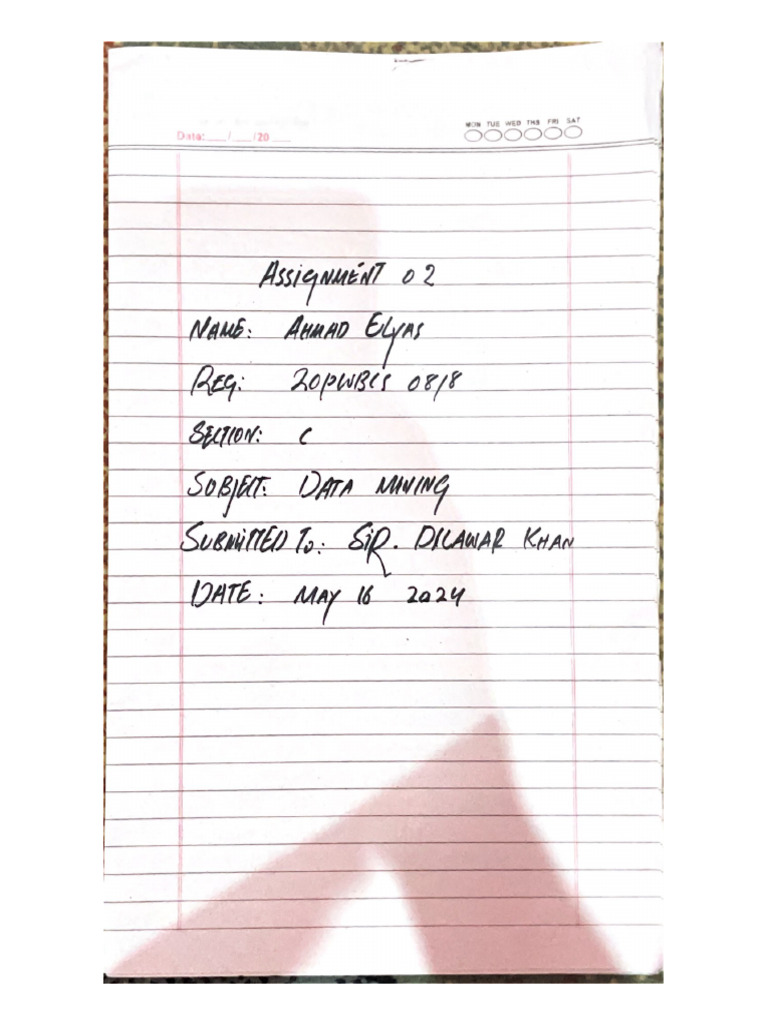 MON TUE WED THS FRI SAT
Date:___/___/20___
ASSIGNMENT 02
NAME: AHMAD ELYAS
REG: 20PWBCS 0818
SECTION: C
SUBJECT: DATA MINING
SUBMITTED TO: SIR. DILAWAR KHAN
DATE: MAY 16 2024